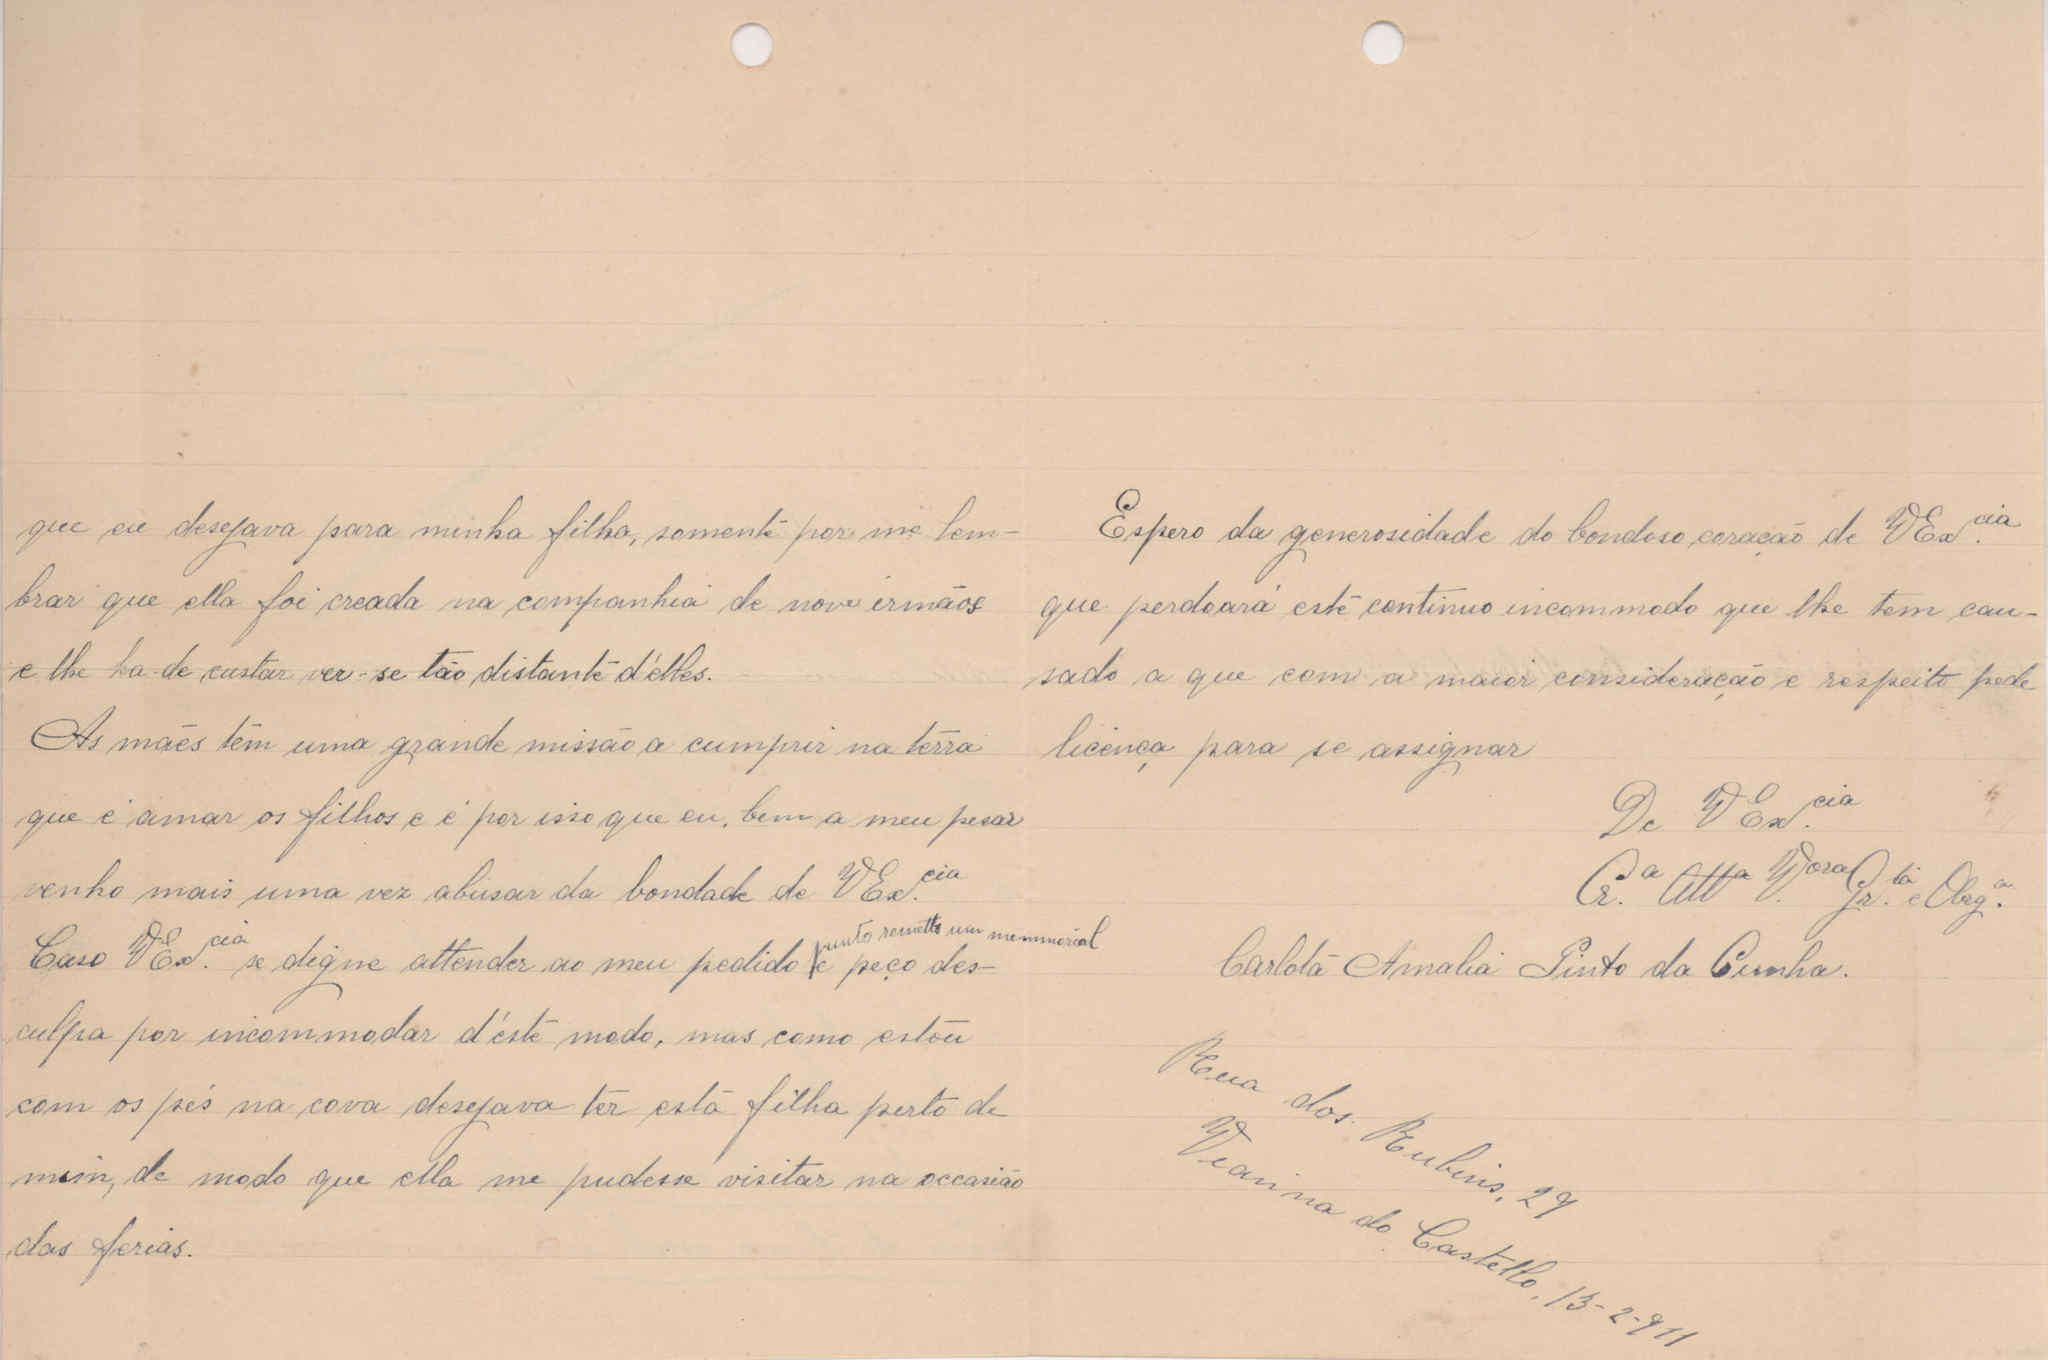 que eu desejava para minha filha, somente por me lem-
brar que ella foi creada na companhia de nove irmãos
e lhe ha-de custar ver-se tão distante d'elles.
As mães têm uma grande missão a cumprir na terra
que é amar os filhos e é por isso que eu, bem a meu pesar
venho mais uma vez abusar da bondade de VEx.cia
junto remetto um memmorial
Caso VEx.cia se digne attender ao meu pedido e peço des-
culpa por incommodar d'este modo, mas como estou
com os pés na cova desejava ter esta filha perto de
mim, de modo que ella me pudesse visitar na occasião
das ferias.
Espero da generosidade do bondoso coração de VEx.cia
que perdoará este continuo incommodo que lhe tem cau-
sado a que com a maior consideração e respeito pede
licença para se assignar
De VEx.cia
Cr.a Att.a V.ora Gr.ta e Obrg.a
Carlota Amalia Pinto da Cunha.
Rua dos Rubins, 29
Vianna do Castello, 13-2-911